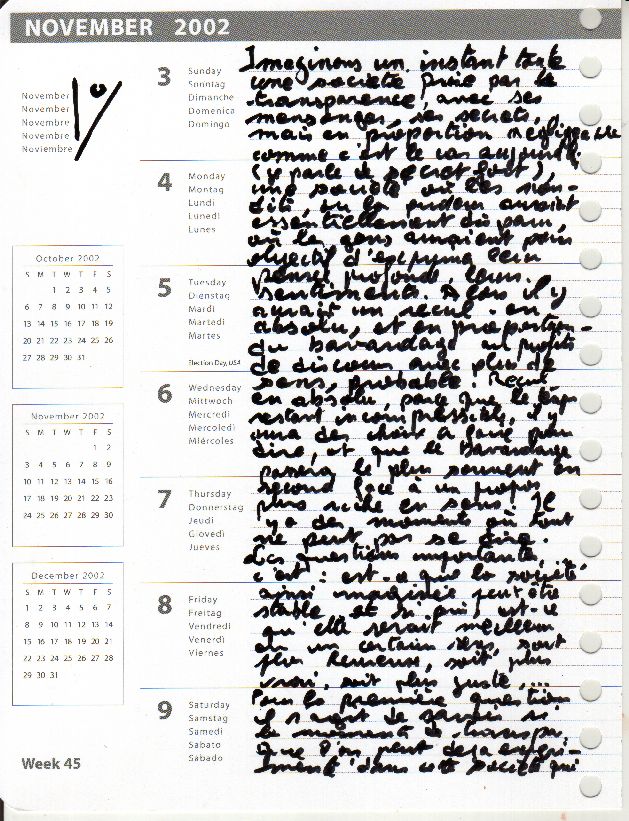 NOVEMBER 2002
November
November
Novembre
Novembre
Noviembre
3 Sunday
Sonntag
Dimanche
Domenica
Domingo
4 Monday
Montag
Lundi
Lunedì
Lunes
5 Tuesday
Dienstag
Mardi
Martedì
Martes
Election Day, USA
6 Wednesday
Mittwoch
Mercredi
Mercoledì
Miércoles
7 Thursday
Donnerstag
Jeudi
Giovedì
Jueves
8 Friday
Freitag
Vendredi
Venerdì
Viernes
9 Saturday
Samstag
Samedi
Sabato
Sábado
October 2002
S M T W T F S
1 2 3 4 5
6 7 8 9 10 11 12
13 14 15 16 17 18 19
20 21 22 23 24 25 26
27 28 29 30 31
November 2002
S M T W T F S
1 2
3 4 5 6 7 8 9
10 11 12 13 14 15 16
17 18 19 20 21 22 23
24 25 26 27 28 29 30
December 2002
S M T W T F S
1 2 3 4 5 6 7
8 9 10 11 12 13 14
15 16 17 18 19 20 21
22 23 24 25 26 27 28
29 30 31
Week 45
Imaginons un instant
une société prise par la
transparence, avec ses
mensonges, ses secrets,
mais en proportion négligeable
comme c'est le cas aujourd'hui
(je parle de secret fort),
une société où les non-
dits, ou la pudeur auraient
essentiellement disparu,
où les gens auraient pour
objectif d'exprimer leur
pensée profonde, leurs
sentiments. Alors il y
aurait un recul en
absolu, et en proportion
du bavardage au profit
de discours avec plus de
sens, probable. Recul
en absolu, parce que le
restant incompressible, il y
aura des choix à faire pour
dire, et que le bavardage
passera le plus souvent en
second face à un propos
plus riche en sens. Il
y a des moments où tout
ne peut pas se dire.
Les questions importantes,
c'est : est-ce que la société
ainsi imaginée peut être
stable et si oui, est-ce
qu'elle serait meilleure
en un certain sens, soit
plus heureuse, soit plus
vraie, soit plus juste, ...
Pour la première question
il s'agit de savoir si
les moments de transpa-
que l'on peut déjà expéri-
menté dans cette société qui